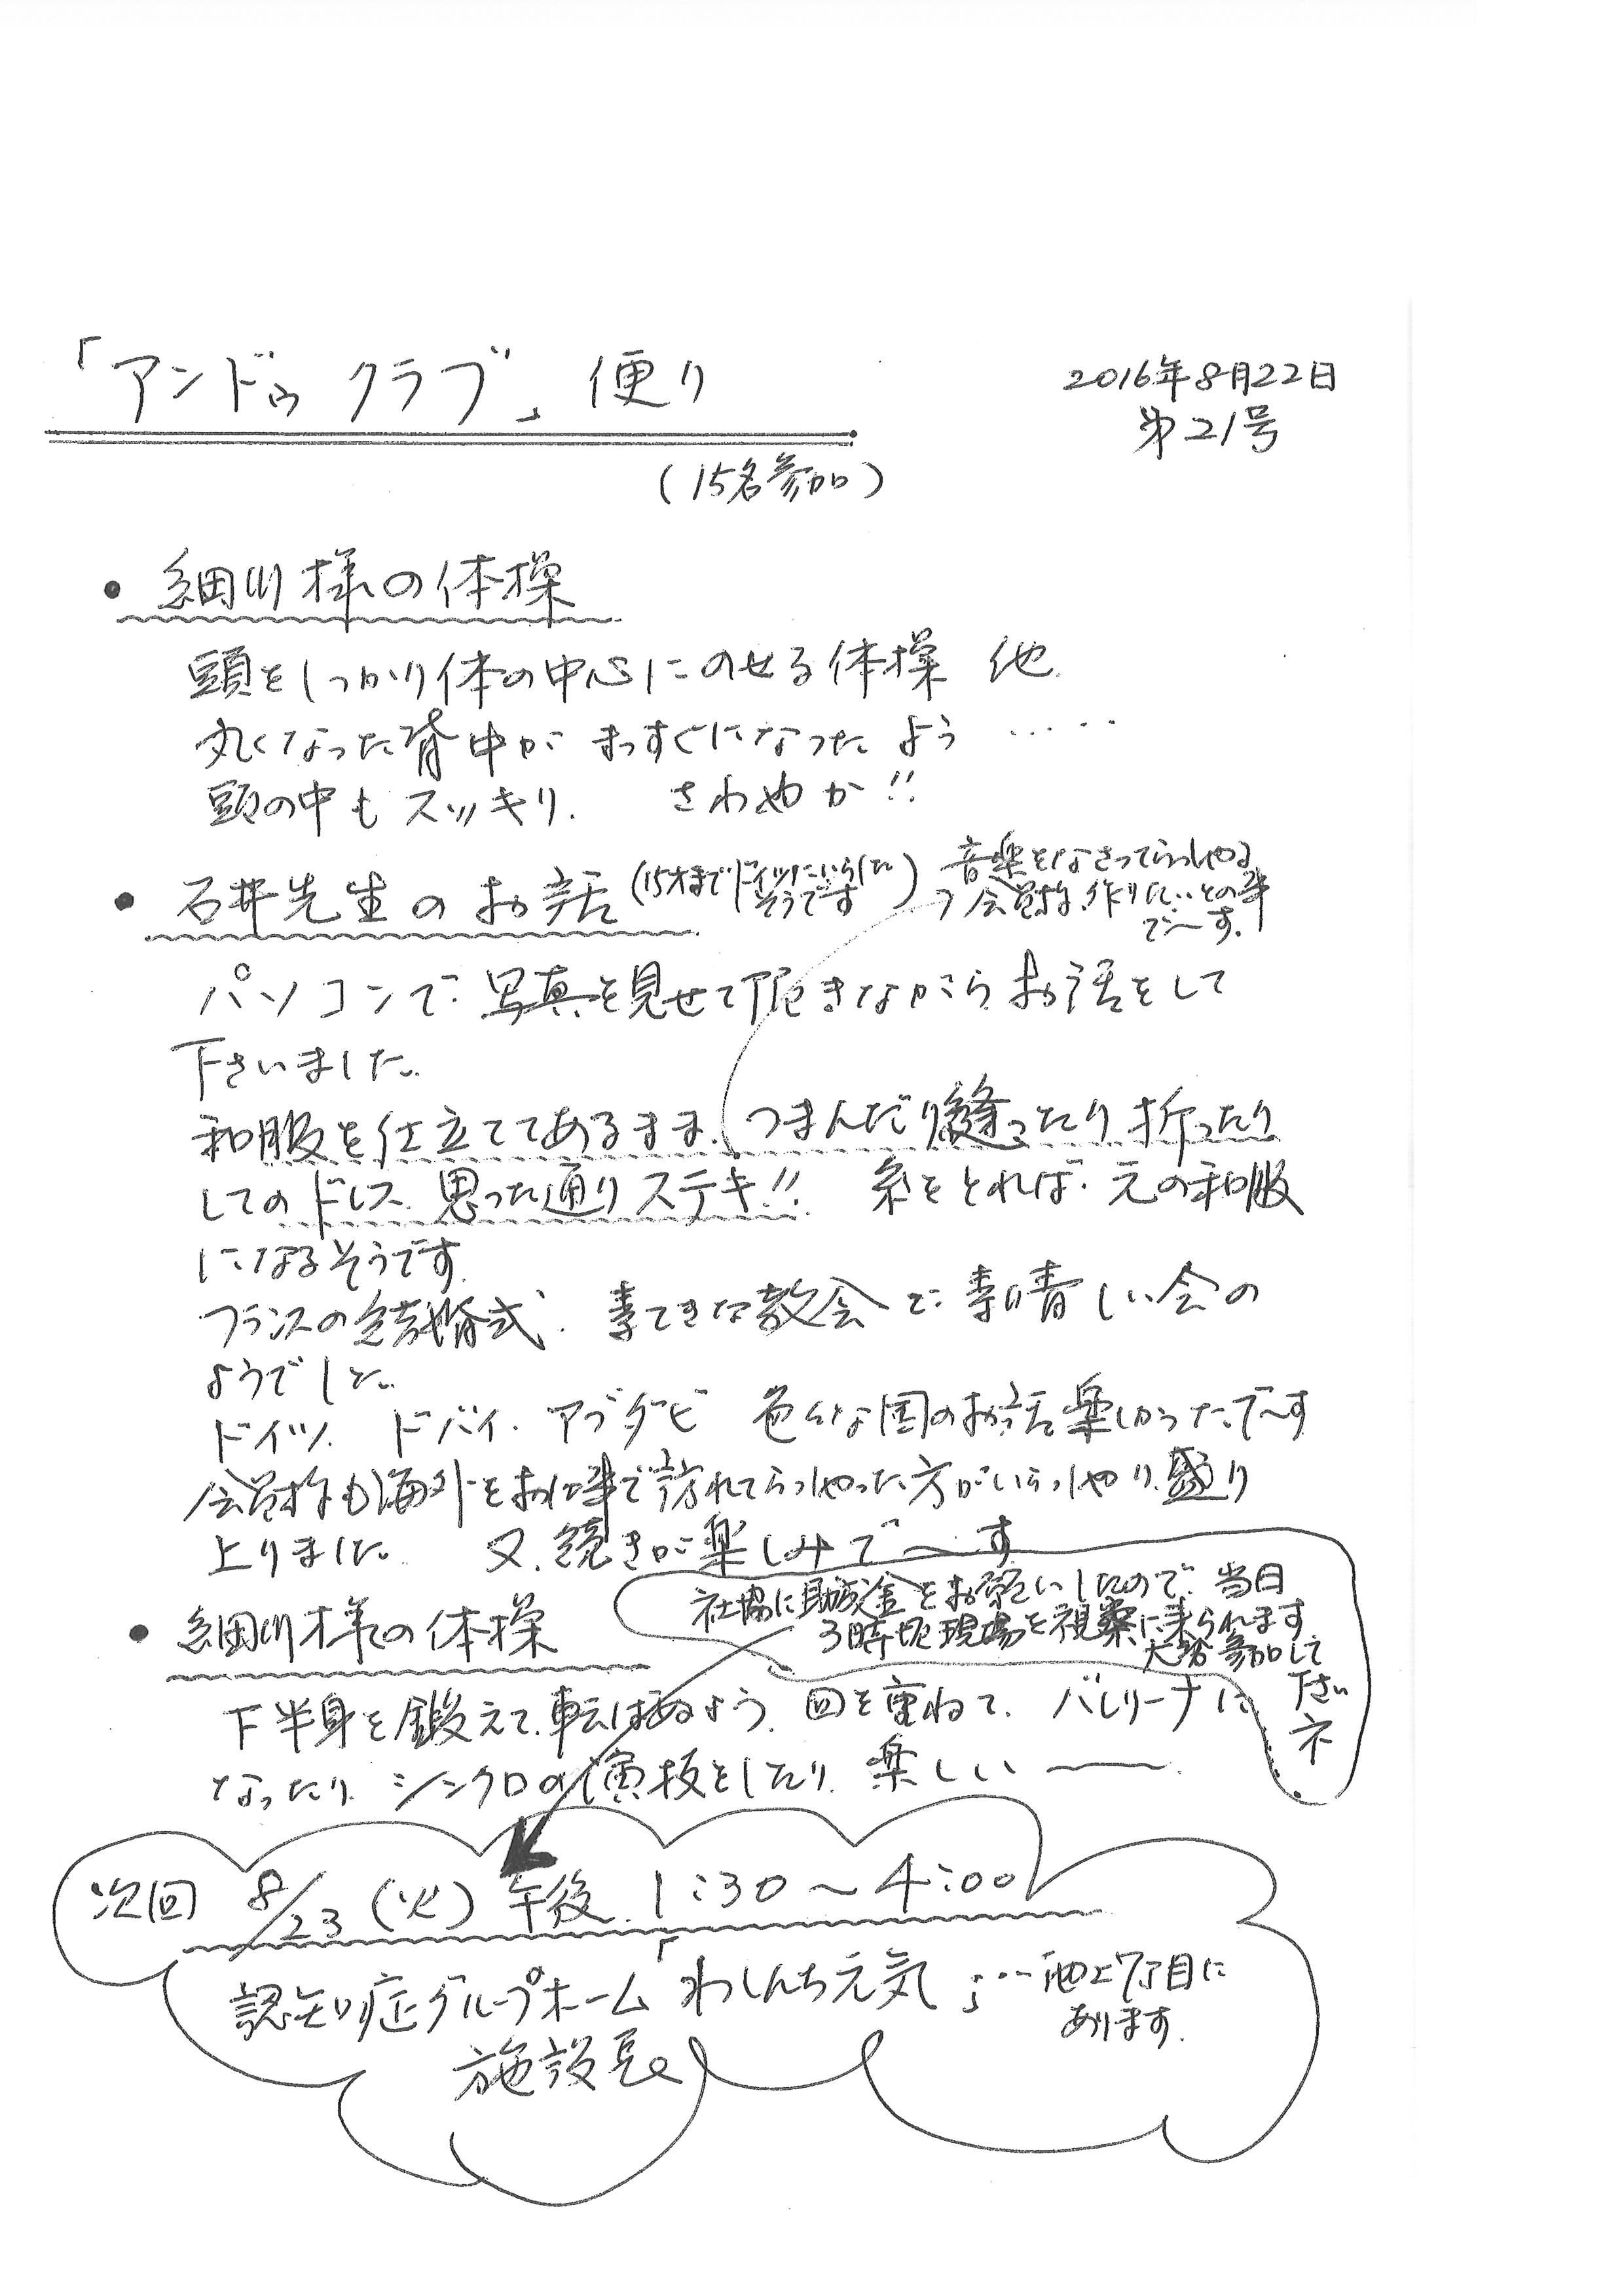 「アンドゥ クラブ」便り
2016年8月22日
第21号
(15名参加)
• 細川様の体操
頭をしっかり体の中心にのせる体操 他
丸くなった背中が まっすぐになった よう ‥‥‥
頭の中も スッキリ. さわやか!!
• 石井先生のお話
(15才までドイツにいらした
そうです)
音楽をなさってらっしゃる
会員様、作りたいとの事
で〜す.
パソコンで 写真を見せて頂きながら お話をして
下さいました。
和服を仕立ててあるまま、つまんだり縫ったり折ったり
してのドレス. 思った通りステキ!! 糸をとれば 元の和服
になるそうです.
フランスの結婚式. 素てきな教会で 素晴しい会の
ようでした。
ドイツ. ドバイ. アブダビ 色々な国のお話楽しかったで〜す
会員様も海外をお仕事で訪れてらっしゃった方がいらっしゃり. 盛り
上りました。 又、続きが楽しみで〜す
社協に助成金をお願いしたので、当日
3時頃現場を視察に来られます
大勢参加して
下さい
ネ
• 細川様の体操
下半身を鍛えて、転ばぬよう. 回を重ねて、バレリーナに
なったり. シンクロの演技をしたり. 楽しい〜〜.
次回 8/23 (火) 午後 1:30〜4:00
認知症グループホーム「わしんち元気」…池上7丁目に
あります.
施設長